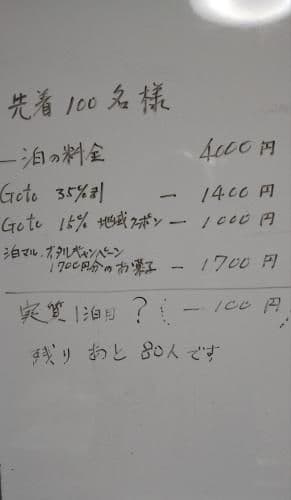 先着100名様
一泊の料金 4000円
Goto 35%割 － 1400円
Goto 15% 地域クーポン － 1000円
泊マル.ホタルキャンペーン
1700円分のお菓子 － 1700円
実質1泊目 ? － 100円
残り あと 80人です